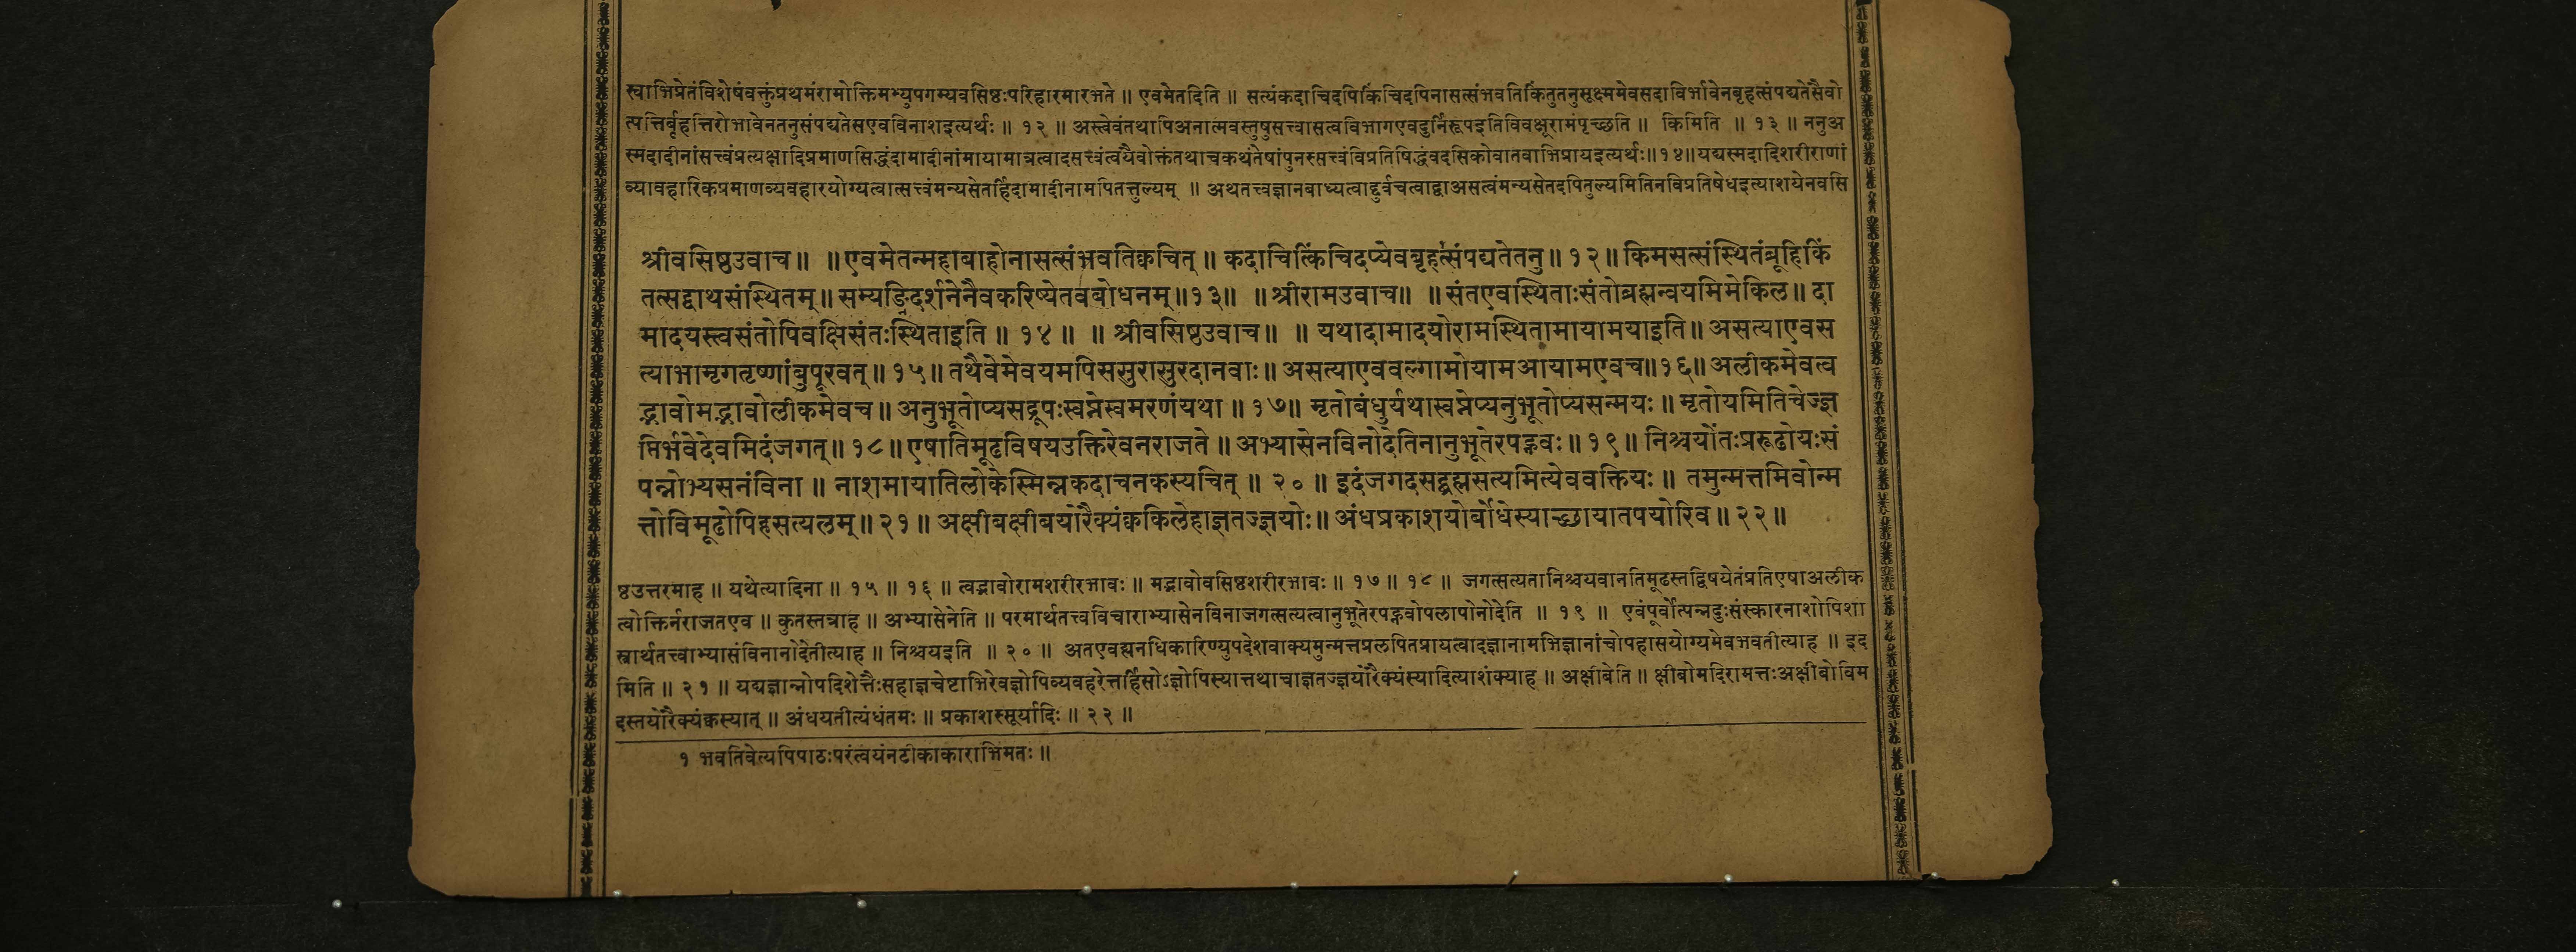 स्वाभिप्रेतंविशेषंवक्तुंप्रथमंरामोक्तिमभ्युपगम्यवसिष्ठःपरिहारमारभते ॥ एवमेतदिति ॥ सत्यंकदाचिदपिकिंचिदपिनासत्संभवतिकिंतुतनुसूक्ष्ममेवसदाविर्भावेनबृहत्संपद्यतेसैवो
त्पत्तिर्बृहत्तिरोभावेनतनुसंपद्यतेसएवविनाशइत्यर्थः ॥ १२ ॥ अस्त्वेवंतथापिअनात्मवस्तुषुसत्त्वासत्वविभागएवदुर्निरूपइतिविवक्षूरामंपृच्छति ॥ किमिति ॥ १३ ॥ ननुअ
स्मदादीनांसत्त्वंप्रत्यक्षादिप्रमाणसिद्धंदामादीनांमायामात्रत्वादसत्त्वंत्वयैवोक्तंतथाचकथंतेषांपुनस्सत्त्वंविप्रतिषिद्धंवदसिकोवातवाभिप्रायइत्यर्थः॥१४॥यद्यस्मदादिशरीराणां
व्यावहारिकप्रमाणव्यवहारयोग्यत्वात्सत्त्वंमन्यसेतर्हिदामादीनामपितत्तुल्यम् ॥ अथतत्त्वज्ञानबाध्यत्वाद्दुर्वचत्वाद्वाअसत्वंमन्यसेतदपितुल्यमितिनविप्रतिषेधइत्याशयेनवसि
श्रीवसिष्ठउवाच॥ ॥एवमेतन्महाबाहोनासत्संभवतिक्वचित् ॥ कदाचित्किंचिदप्येवबृहत्संपद्यतेतनु॥ १२॥ किमसत्संस्थितंब्रूहिकिं
तत्सद्वाथसंस्थितम्॥ सम्यङ्निदर्शनेनैवकरिष्येतवबोधनम्॥१३॥ ॥श्रीरामउवाच॥ ॥संतएवस्थिताःसंतोब्रह्मन्वयमिमेकिल॥ दा
मादयस्त्वसंतोपिवक्षिसंतःस्थिताइति ॥ १४ ॥ ॥ श्रीवसिष्ठउवाच॥ ॥ यथादामादयोरामस्थितामायामयाइति॥ असत्याएवस
त्याभामृगतृष्णांबुपूरवत्॥ १५॥ तथैवेमेवयमपिससुरासुरदानवाः॥ असत्याएववल्गामोयामआयामएवच॥१६॥ अलीकमेवत्व
द्भावोमद्भावोलीकमेवच॥ अनुभूतोप्यसद्रूपःस्वप्नेस्वमरणंयथा ॥ १७॥ मृतोबंधुर्यथास्वप्नेप्यनुभूतोप्यसन्मयः ॥ मृतोयमितिचेज्ज्ञ
प्तिर्भवेदेवमिदंजगत्॥ १८॥ एषातिमूढविषयउक्तिरेवनराजते ॥ अभ्यासेनविनोदेतिनानुभूतेरपह्नवः॥ १९॥ निश्चयोंतःप्ररूढोयःसं
पन्नोभ्यसनंविना ॥ नाशमायातिलोकेस्मिन्नकदाचनकस्यचित् ॥ २० ॥ इदंजगदसद्ब्रह्मसत्यमित्येववक्तियः॥ तमुन्मत्तमिवोन्म
त्तोविमूढोपिहसत्यलम्॥ २१ ॥ अक्षीबक्षीबयोरैक्यंक्वकिलेहाज्ञतज्ज्ञयोः॥ अंधप्रकाशयोर्बोधेस्याच्छायातपयोरिव॥ २२॥
ष्ठउत्तरमाह ॥ यथेत्यादिना ॥ १५ ॥ १६ ॥ त्वद्भावोरामशरीरभावः ॥ मद्भावोवसिष्ठशरीरभावः ॥ १७ ॥ १८ ॥ जगत्सत्यतानिश्चयवानतिमूढस्तद्विषयेतंप्रतिएषाअलीक
त्वोक्तिर्नराजतएव ॥ कुतस्तत्राह ॥ अभ्यासेनेति ॥ परमार्थतत्त्वविचाराभ्यासेनविनाजगत्सत्यत्वानुभूतेरपह्नवोपलापोनोदेति ॥ १९ ॥ एवंपूर्वोत्पन्नदुःसंस्कारनाशोपिशा
स्त्रार्थतत्त्वाभ्यासंविनानोदेतीत्याह ॥ निश्चयइति ॥ २० ॥ अतएवह्यनधिकारिण्युपदेशवाक्यमुन्मत्तप्रलपितप्रायत्वादज्ञानामभिज्ञानांचोपहासयोग्यमेवभवतीत्याह ॥ इद
मिति ॥ २१ ॥ यद्यज्ञान्नोपदिशेत्तैःसहाज्ञचेष्टाभिरेवज्ञोपिव्यवहरेत्तर्हिसोऽज्ञोपिस्यात्तथाचाज्ञतज्ज्ञयोरैक्यंस्यादित्याशंक्याह ॥ अक्षीबेति ॥ क्षीबोमदिरामत्तःअक्षीबोविम
दस्तयोरैक्यंक्वस्यात् ॥ अंधयतीत्यंधंतमः ॥ प्रकाशस्सूर्यादिः ॥ २२ ॥
१ भवतिवेत्यपिपाठःपरंत्वयंनटीकाकाराभिमतः ॥